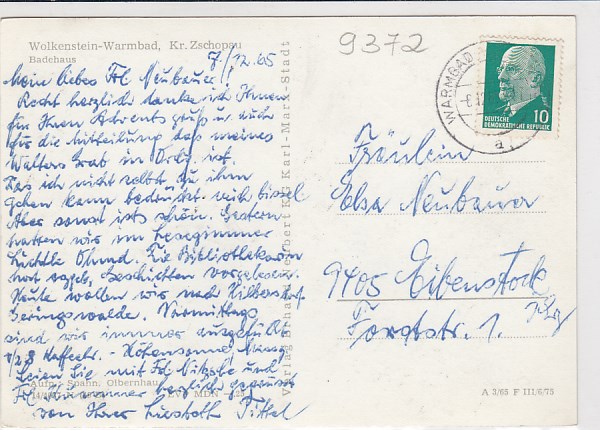 Wolkenstein-Warmbad, Kr. Zschopau
Badehaus
7./12.65
Mein liebes Frl. Neubauer!
Recht herzlich danke ich Ihnen
für Ihren Adventsgruß u. auch
für die Mitteilung daß meines
Walters Grab in Ordg. ist.
Das ich nicht selbst zu ihm
gehen kann bedrückt mich bissel
Aber sonst ists schön. Gestern
hatten wir im Lesezimmer
Lichtle Obnd. Die Bibliothekarin
hat Geschichten vorgelesen.
Heute wollen wir nach
Geringswalde. Vormittags
sind wir immer ausgefüllt
1/2 3 Kaffeetr. - Höhensonne, Mass.
Seien Sie mit Frl. Nitzsche und
Frl. herzlich gegrüsst
von Ihrer Tittel
Aufn.: Spahn, Olbernhau
EVP MDN
Verlag Erhard Neubert KG Karl-Marx-Stadt
9372
WARMBAD
10
DEUTSCHE
DEMOKRATISCHE REPUBLIK
a
Fräulein
Elsa Neubauer
9405 Eibenstock
Forststr. 1.
A 3/65 F III/6/75